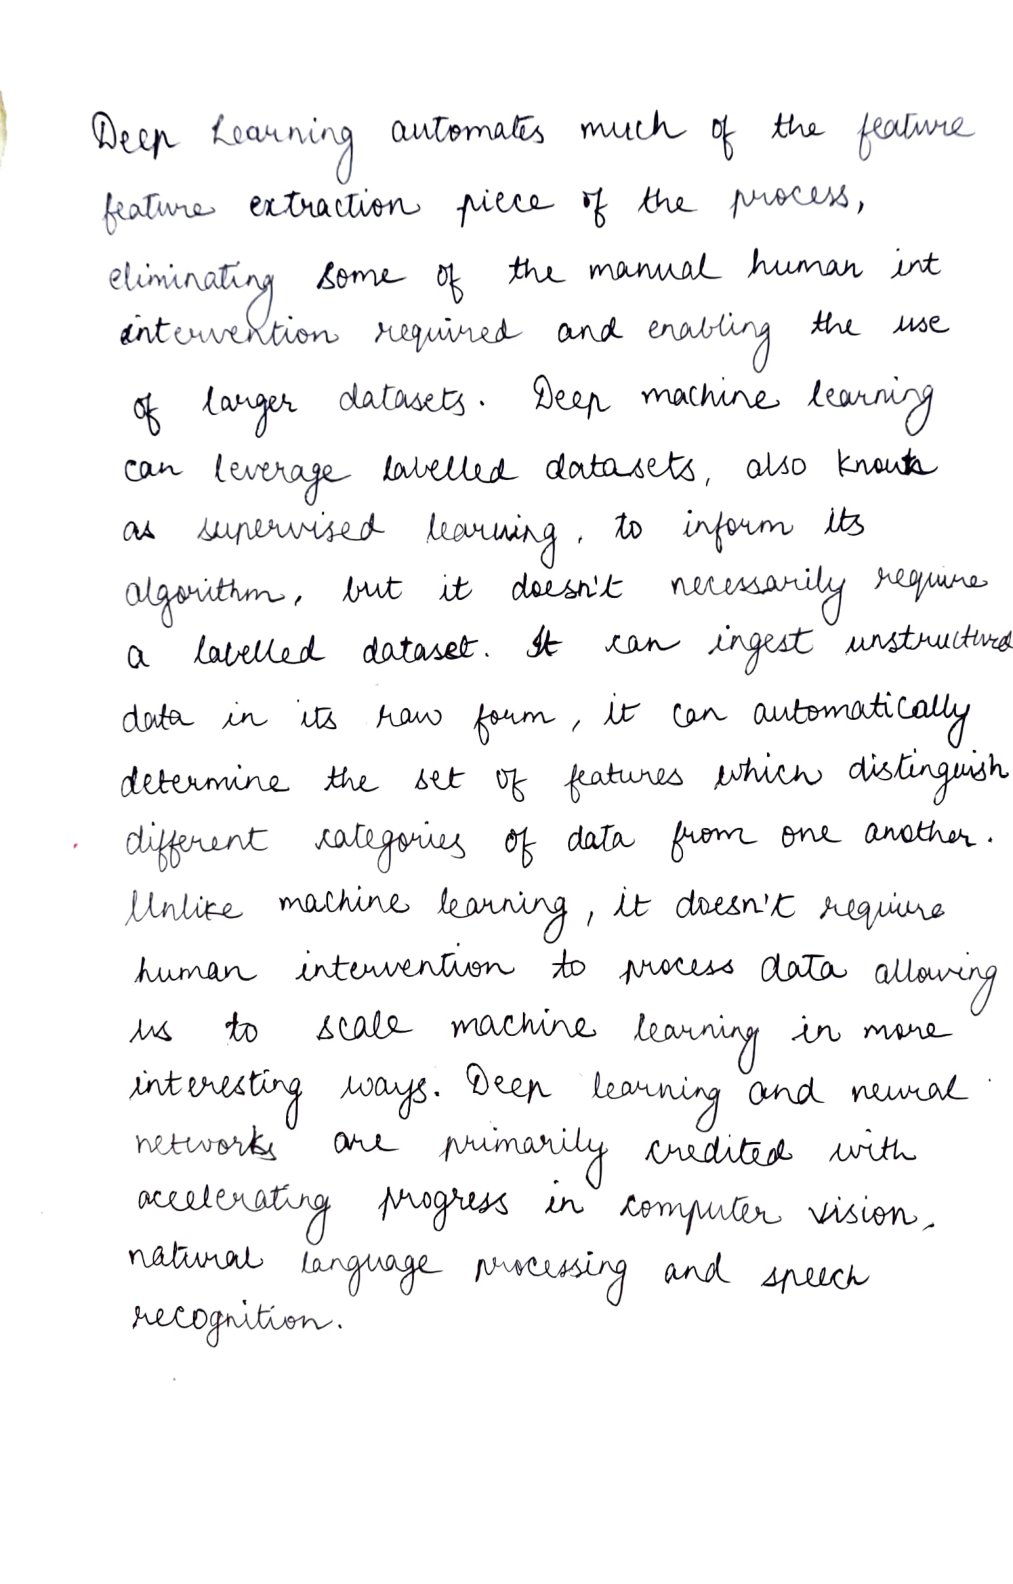 Deep Learning automates much of the feature
feature extraction piece of the process,
eliminating some of the manual human int
intervention required and enabling the use
of larger datasets. Deep machine learning
can leverage labelled datasets, also known
as supervised learning, to inform its
algorithm, but it doesn't necessarily require
a labelled dataset. It can ingest unstructured
data in its raw form, it can automatically
determine the set of features which distinguish
different categories of data from one another.
Unlike machine learning, it doesn't require
human intervention to process data allowing
us to scale machine learning in more
interesting ways. Deep learning and neural
networks are primarily credited with
accelerating progress in computer vision,
natural language processing and speech
recognition.